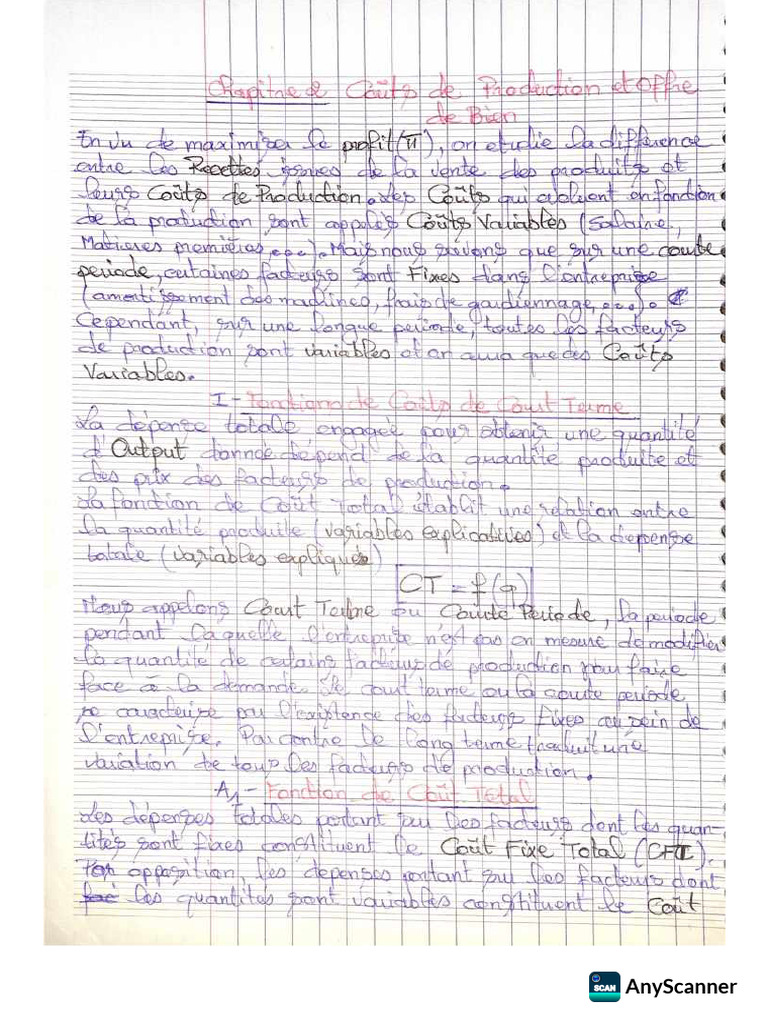 Chapitre 2 Coûts de Production et Offre
de Bien
En vu de maximiser le profit (π), on etudie la difference
entre les Recettes issues de la vente des produits et
leurs Coûts de Production. Les Coûts qui evoluent en fonction
de la production sont appelés Coûts Variables (Salaire,
Matieres premières, ...). Mais nous savons que sur une courte
periode, certaines facteurs sont Fixes dans l'entreprise
(amortissement des machines, frais de gardiennage, ...).
Cependant, sur une longue periode, toutes les facteurs
de production sont variables et on aura que des Coûts
Variables.
I - Fonctions de Coûts de Court Terme
La dépense totale engagée pour obtenir une quantité
d'Output donnée dépend de la quantité produite et
des prix des facteurs de production.
La fonction de Coût Total établit une relation entre
la quantité produite (variables explicatives) et la depense
totale (variables expliques)
CT = f(q)
Nous appelons Court Terme ou Courte Periode, la periode
pendant laquelle l'entreprise n'est pas en mesure de modifier
la quantité de certains facteurs de production pour faire
face à la demande. Le court terme ou la courte periode
se caracterise par l'existence des facteurs fixes au sein de
l'entreprise. Par contre le long terme traduit une
variation de tous les facteurs de production.
A1 - Fonction de Coût Total
Les dépenses totales portant sur les facteurs dont les quan-
tités sont fixes constituent le Coût Fixe Total (CFT).
Par opposition, les depenses portant sur les facteurs dont
les quantités sont variables constituent le Coût
AnyScanner
SCAN